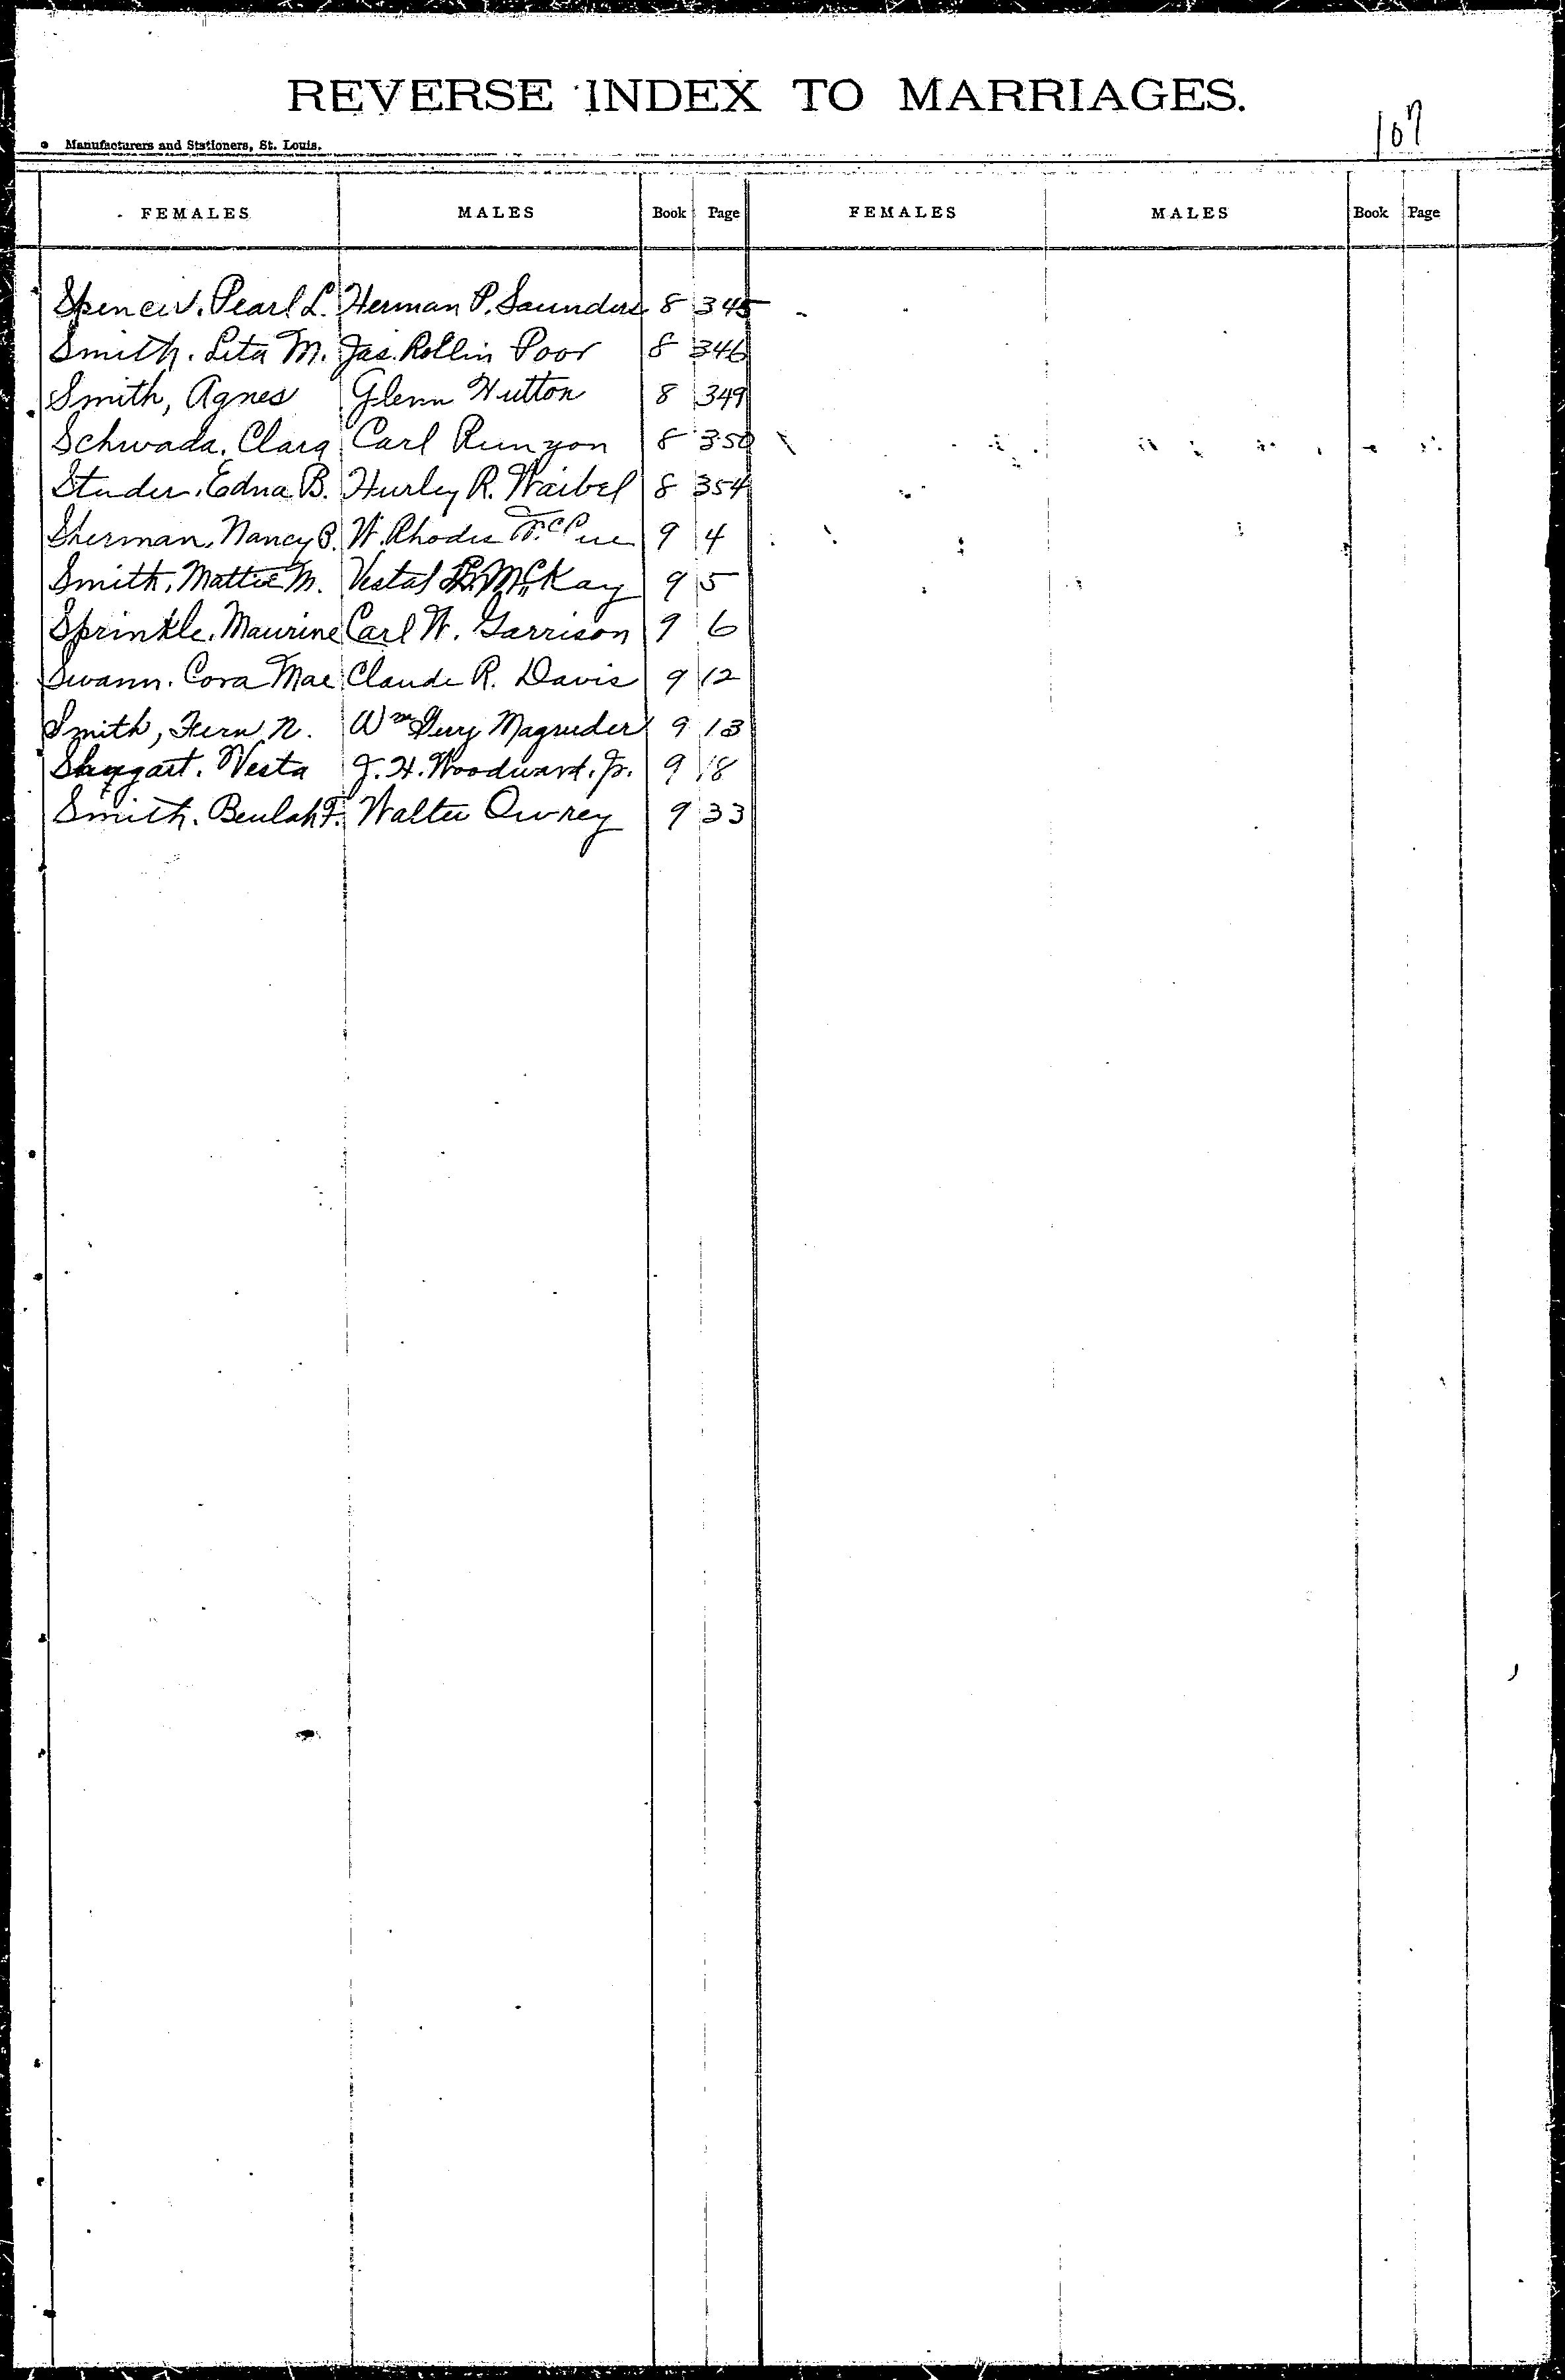 REVERSE INDEX TO MARRIAGES.
107
Manufacturers and Stationers, St. Louis.
FEMALES MALES Book Page FEMALES MALES Book Page
Spencer. Pearl L. Herman P. Saunders 8 345
Smith. Leta M. Jas. Rollin Poor 8 346
Smith, Agnes Glenn Hutton 8 349
Schwada. Clara Carl Runyon 8 350
Studer. Edna B. Hurley R. Waibel 8 354
Sherman, Nancy B. W. Rhodes 9 4
Smith, Mattie M. Vestal McKay 9 5
Sprinkle. Maurine Carl W. Garrison 9 6
Swann. Cora Mae Claude R. Davis 9 12
Smith, Fern N. Wm Magruder 9 13
Vesta J. H. Woodward. Jr. 9 18
Smith. Beulah F. Walter Owrey 9 33